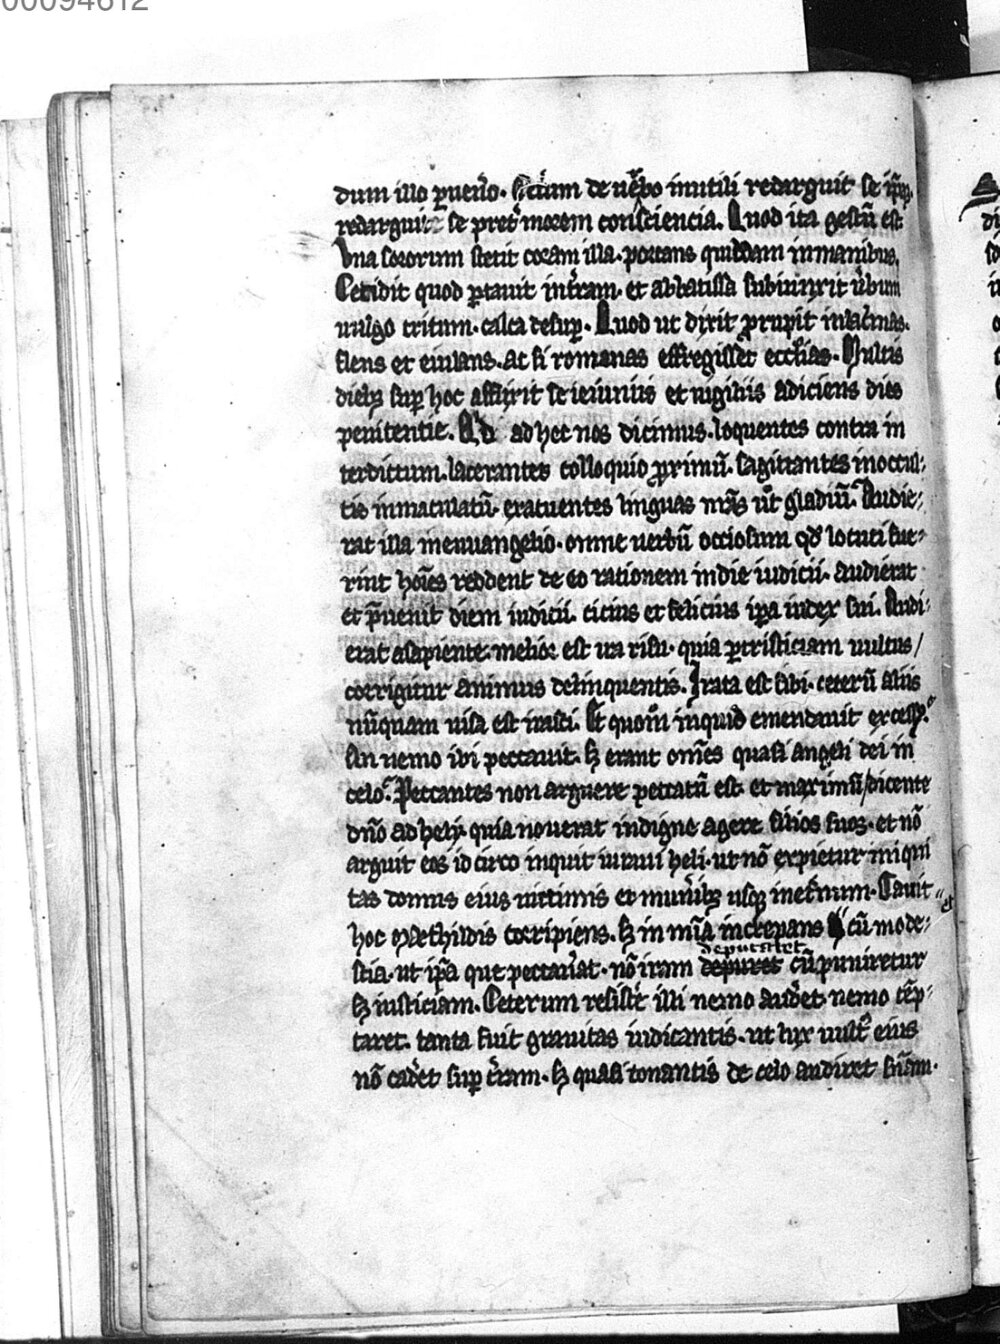 00094612
dum illo ꝑueño. sciam de ũbo inutili redarguit se
redarguit se pret̾ morem consciencia. Quod ita gestũ est
Vna sororum stetit coram illa. portans quiddam inmanibus.
Cecidit quod ꝑtauit inťram. et abbatissa subiunxit ũbum
uulgo tritum. calca desuꝑ. Quod ut dixit ꝓrupit inlac̾mas.
flens et eiulans. ac si romanas effregisset ecc̃ias. Multis
dieb; suꝑ hoc afflixit se ieiuniis et uigiliis adiciens dies
penitentie. Qͥd ad hec nos dicimus. loquentes contra in
terdictum. lacerantes colloquio ꝓximũ. sagittantes inoccul
tis inmaculatũ. exacuentes linguas nr̃as ut̾ gladiũ. Audie
rat illa ineuuangelio. omne uerbũ occiosum qd̾ locuti fue
rint hoĩes reddent de eo rationem indie iudicii. audierat
et p̃uenit diem iudicii. cicius et felicius ip̃a iudex sui. Audi
erat asapiente. melior est ira risu. quia ꝑtristiciam uultus /
corrigitur animus delinquentis. Irata est sibi. ceterũ aliis
nũquam uisa est irasci. Et quom̃ inquid emendauit excessꝰ.
An nemo ibi peccauit. s; erant om̃es quasi angeli dei in
celo. Peccantes non arguere peccatũ est. et maximũ / dicente
dño ad hely. quia nouerat indigne agere filios suos. et nõ
arguit eos id circo inquit iuraui heli. ut nõ expietur iniqui
tas domus eius uictimis et mun̾ib; usq; inet̾num. Cauit
et
hoc Mæthildis corripiens. s; in mĩa increpans cũ mode
deputaret
stia. ut ip̃a que peccauat. nõ iram depuret cũ puniretur
s; iusticiam. Ceterum resist̾e illi nemo aud̾et. nemo tẽp
taret. tanta fuit grauitas iudicantis. ut lux uult̾ eius
nõ cad̾et suꝑ t̾ram. s; quasi tonantis de celo audiret